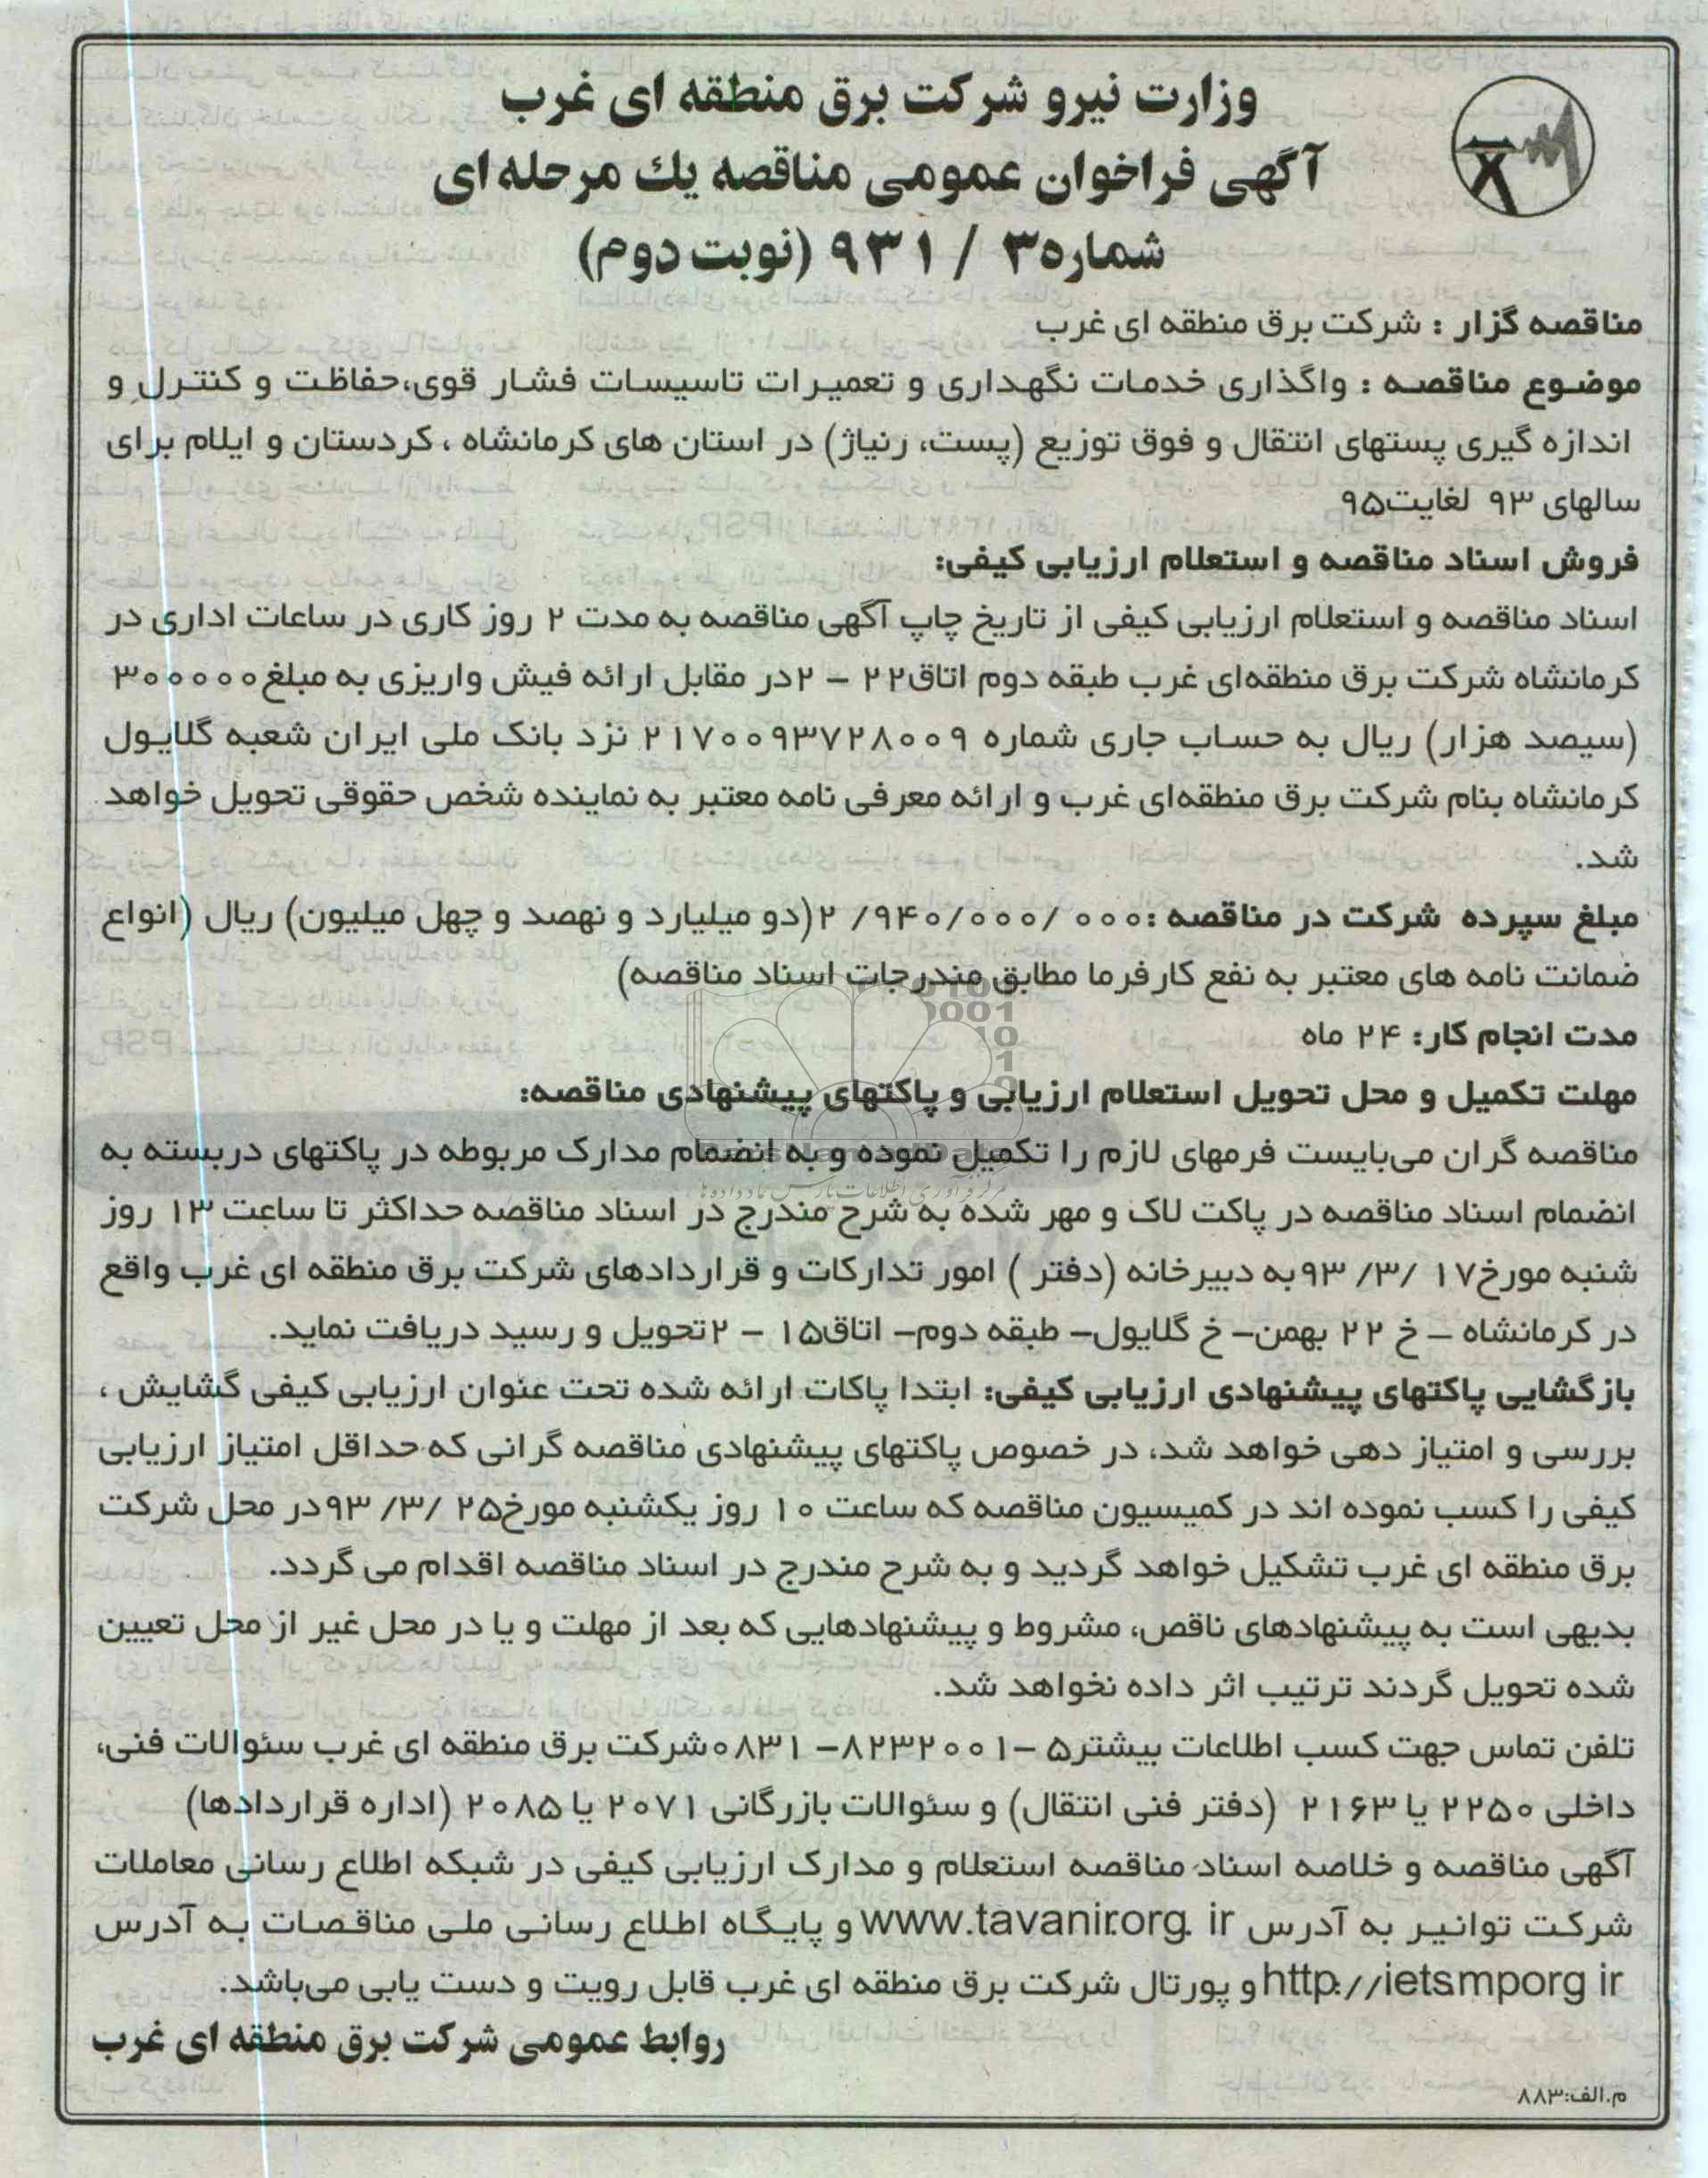 وزارت نیرو شرکت برق منطقه ای غرب
آگهی فراخوان عمومی مناقصه یك مرحله ای
شماره۳ / ۹۳۱ (نوبت دوم)
مناقصه گزار : شرکت برق منطقه ای غرب
موضوع مناقصه : واگذاری خدمات نگهداری و تعمیرات تاسیسات فشار قوی،حفاظت و کنترل و
اندازه گیری پستهای انتقال و فوق توزیع (پست، رنیاژ) در استان های کرمانشاه ، کردستان و ایلام برای
سالهای ۹۳ لغایت۹۵
فروش اسناد مناقصه و استعلام ارزیابی کیفی:
اسناد مناقصه و استعلام ارزیابی کیفی از تاریخ چاپ آگهی مناقصه به مدت ۲ روز کاری در ساعات اداری در
کرمانشاه شرکت برق منطقه‌ای غرب طبقه دوم اتاق۲۲ – ۲در مقابل ارائه فیش واریزی به مبلغ۳۰۰۰۰۰
(سیصد هزار) ریال به حساب جاری شماره ۲۱۷۰۰۹۳۷۲۸۰۰۹ نزد بانک ملی ایران شعبه گلایول
کرمانشاه بنام شرکت برق منطقه‌ای غرب و ارائه معرفی نامه معتبر به نماینده شخص حقوقی تحویل خواهد
شد.
مبلغ سپرده شرکت در مناقصه :۰۰۰ /۲ /۹۴۰/۰۰۰(دو میلیارد و نهصد و چهل میلیون) ریال (انواع
ضمانت نامه های معتبر به نفع کارفرما مطابق مندرجات اسناد مناقصه)
مدت انجام کار: ۲۴ ماه
مهلت تکمیل و محل تحویل استعلام ارزیابی و پاکتهای پیشنهادی مناقصه:
مناقصه گران می‌بایست فرمهای لازم را تکمیل نموده و به انضمام مدارک مربوطه در پاکتهای دربسته به
انضمام اسناد مناقصه در پاکت لاک و مهر شده به شرح مندرج در اسناد مناقصه حداکثر تا ساعت ۱۳ روز
شنبه مورخ۱۷ /۳/ ۹۳به دبیرخانه (دفتر ) امور تدارکات و قراردادهای شرکت برق منطقه ای غرب واقع
در کرمانشاه – خ ۲۲ بهمن– خ گلایول– طبقه دوم– اتاق۱۵ – ۲تحویل و رسید دریافت نماید.
بازگشایی پاکتهای پیشنهادی ارزیابی کیفی: ابتدا پاکات ارائه شده تحت عنوان ارزیابی کیفی گشایش ،
بررسی و امتیاز دهی خواهد شد، در خصوص پاکتهای پیشنهادی مناقصه گرانی که حداقل امتیاز ارزیابی
کیفی را کسب نموده اند در کمیسیون مناقصه که ساعت ۱۰ روز یکشنبه مورخ۲۵ /۳/ ۹۳در محل شرکت
برق منطقه ای غرب تشکیل خواهد گردید و به شرح مندرج در اسناد مناقصه اقدام می گردد.
بدیهی است به پیشنهادهای ناقص، مشروط و پیشنهادهایی که بعد از مهلت و یا در محل غیر از محل تعیین
شده تحویل گردند ترتیب اثر داده نخواهد شد.
تلفن تماس جهت کسب اطلاعات بیشتر۵ –۸۲۳۲۰۰۱– ۰۸۳۱شرکت برق منطقه ای غرب سئوالات فنی،
داخلی ۲۲۵۰ یا ۲۱۶۳ (دفتر فنی انتقال) و سئوالات بازرگانی ۲۰۷۱ یا ۲۰۸۵ (اداره قراردادها)
آگهی مناقصه و خلاصه اسناد مناقصه استعلام و مدارک ارزیابی کیفی در شبکه اطلاع رسانی معاملات
شرکت توانیر به آدرس www.tavanir.org. ir و پایگاه اطلاع رسانی ملی مناقصات به آدرس
http://ietsmporg ir و پورتال شرکت برق منطقه ای غرب قابل رویت و دست یابی می‌باشد.
روابط عمومی شرکت برق منطقه ای غرب
م.الف:۸۸۳